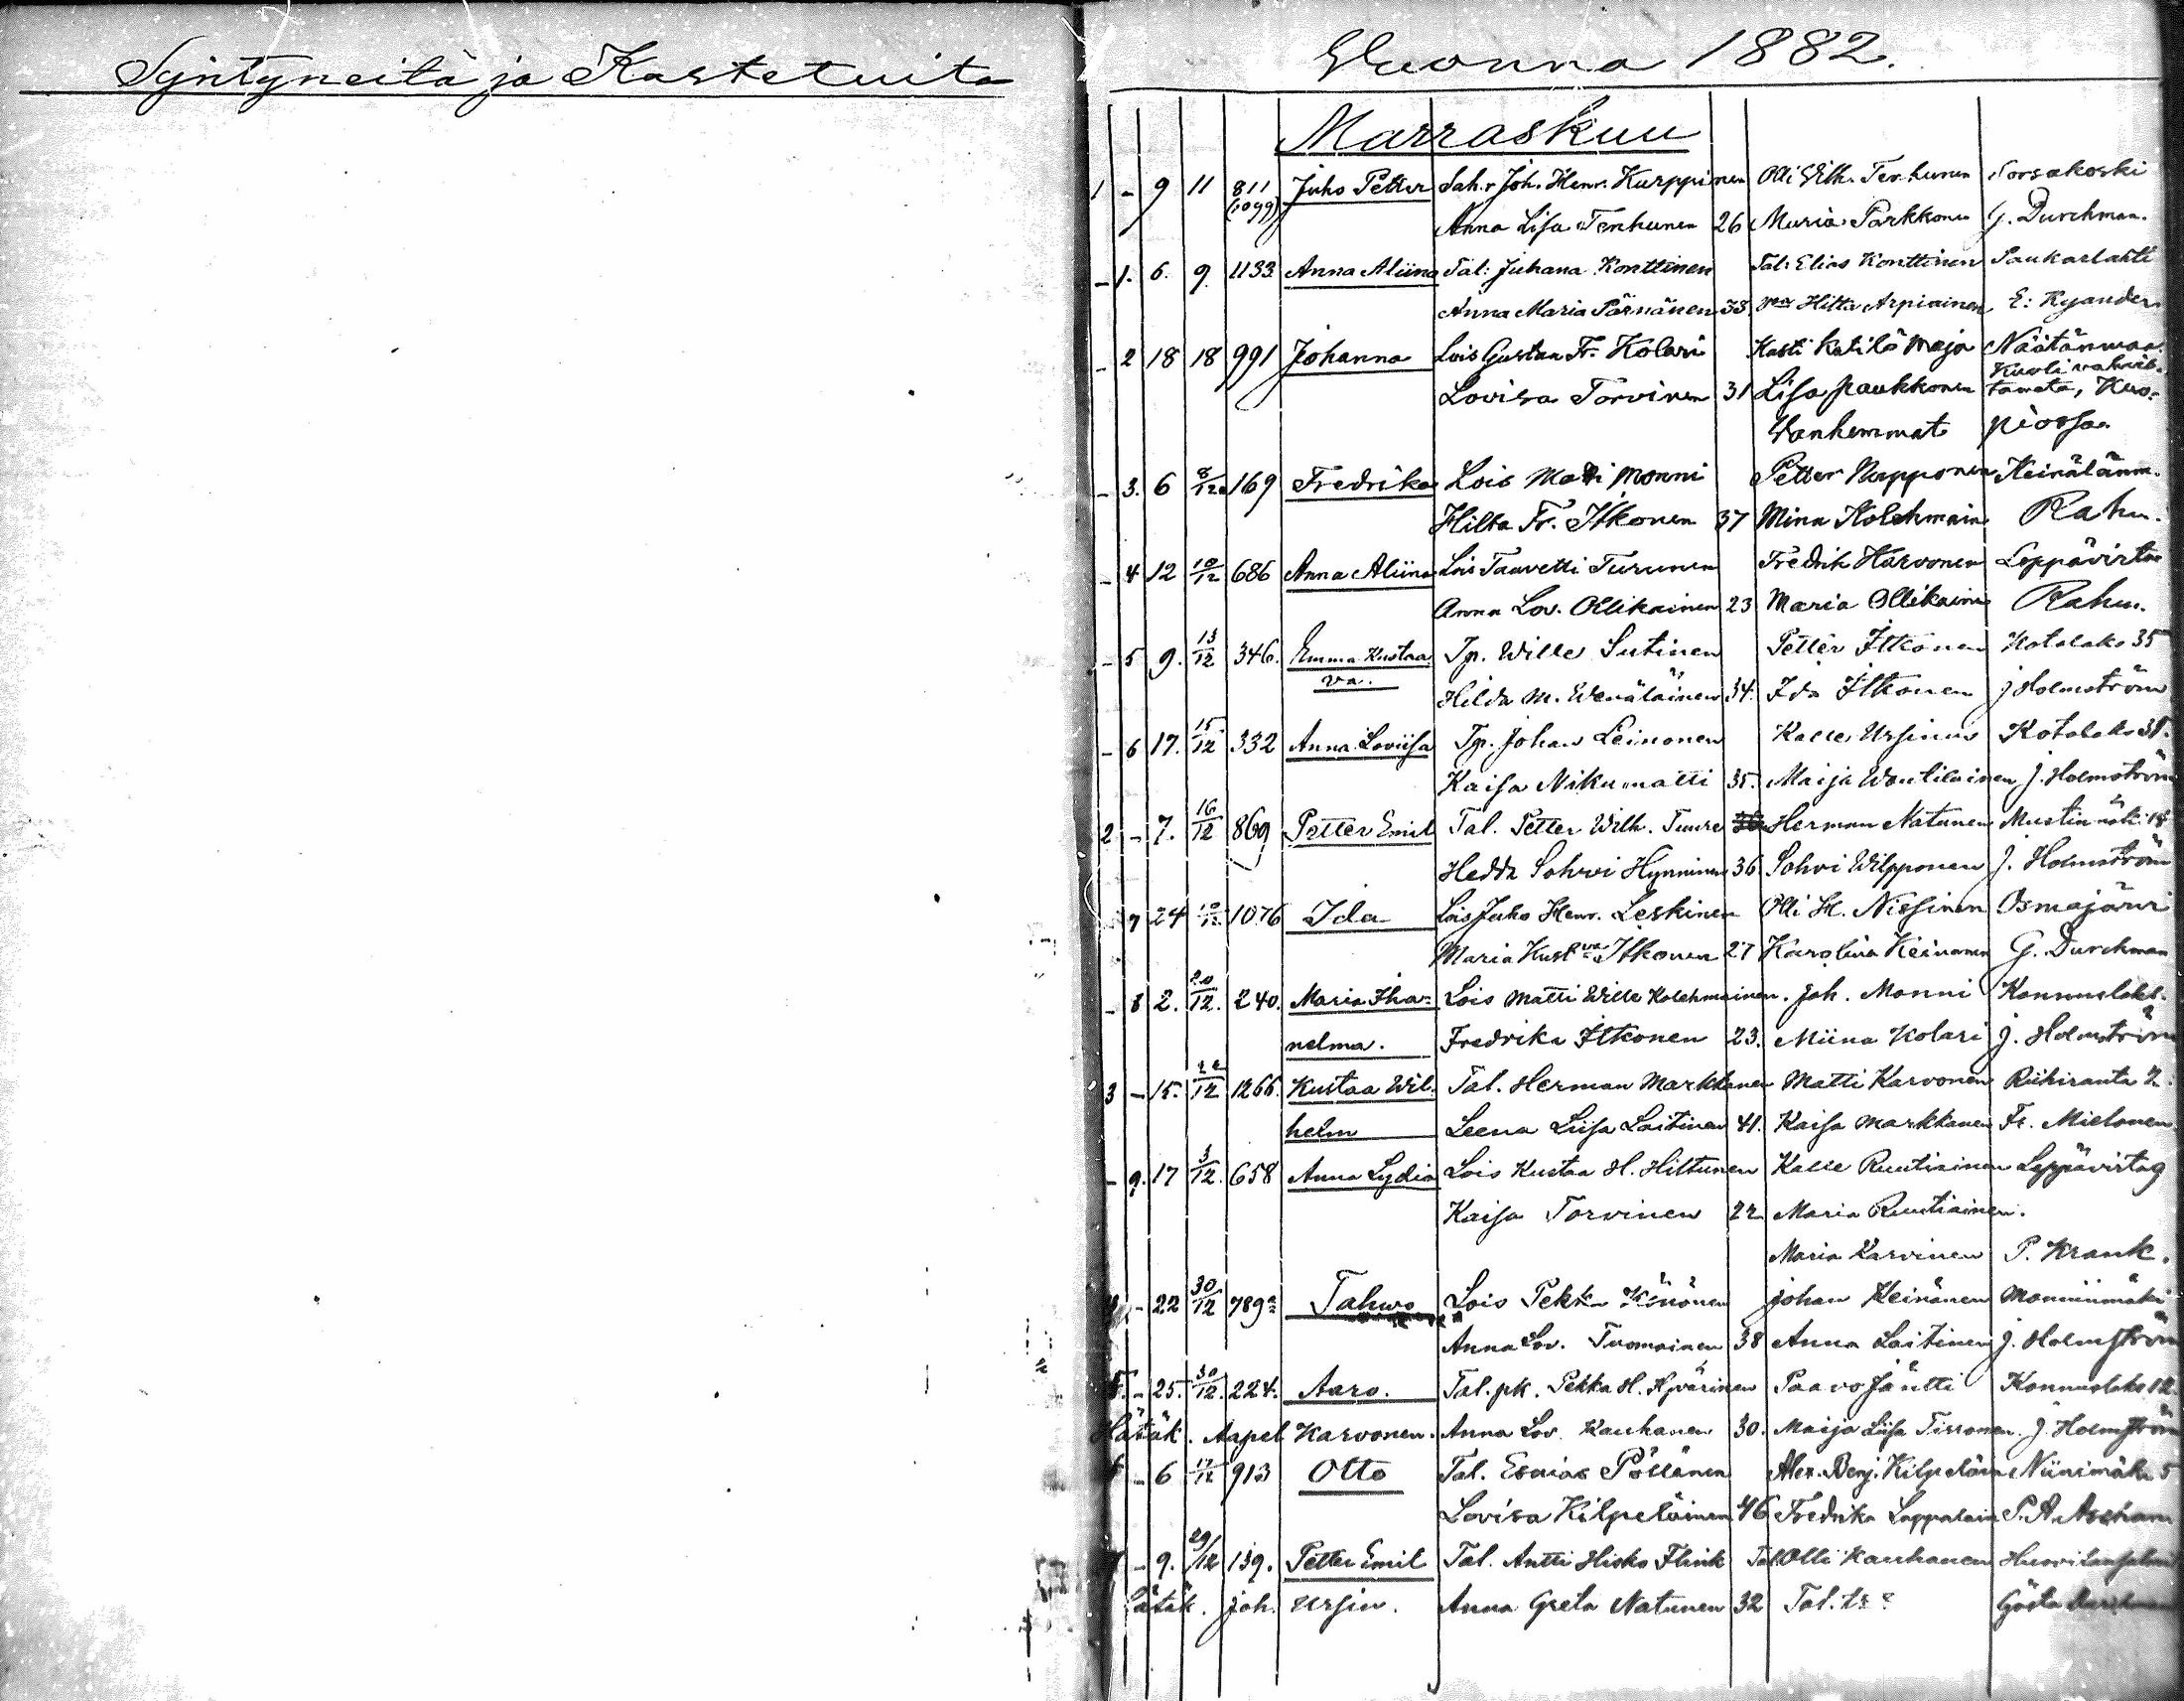 Syntyneitä ja Kastetuita
Vuonna 1882.
Marraskuu
1 - 9 11 811 Juho Petter Sah.r Joh. Henr. Kurppinen Olli Vilh. Tenhunen Sorsakoski
(1099) Anna Lisa Tenhunen 26 Maria Parkkonen G. Durchman.
- 1. 6. 9. 1133 Anna Aliina Tal: Juhana Konttinen Tal: Elias Konttinen Saukarlahti
Anna Maria Pärnänen 33 Hilta Arpiainen E: Kyander
- 2 18 18 991 Johanna Lois Gustaa Fr. Kolari Kasti Kätilö Maja Näätänmaa.
Kuoli vahvis-
Lovisa Torvinen 31 Lisa Paukkonen tamata, Kuo-
Vanhemmat piossa.
- 3. 6 8/12 169 Fredrika Lois Matti Monni Petter Napponen Keinälänm.
Hilta Fr. Itkonen 37 Mina Kolehmain Rahu.
- 4 12 10/12 686 Anna Aliina Lois Taavetti Turunen Fredrik Karvonen Leppävirta
Anna Lov. Ollikainen 23 Maria Ollikaine Rahu.
- 5 9. 13/12 346. Emma Kustaa Tp. Wille Sutinen Petter Itkonen Kotalaks 35
va. Hilda M. Wenäläinen 34. Ida Itkonen J Holmström
- 6 17. 15/12 332 Anna Loviisa Tp. Johan Leinonen Kalle Ursinus Kotalaks 38.
Kaisa Nikumatti 35. Maija Woutilainen J. Holmström
2 - 7. 16/12 869 Petter Emil Tal. Petter Wilh. Tuure Herman Natunen Mustinmäki 18
Hedda Sohvi Hynninen 36 Sohvi Wilpponen J. Holmström
7 24 10/12 1076 Ida Lois Juho Henr. Leskinen Olli H. Nissinen Osmajärvi
Maria Kust.va Itkonen 27 Karolina Keinanen G. Durchman
- 8 2. 20/12. 240. Maria Iha- Lois Matti Wille Kolehmainen. Joh. Monni Konnuslaks.
nelma. Fredrika Itkonen 23. Miina Kolari J. Holmström
3 - 15. 22/12 1266. Kustaa Wil- Tal. Herman Markkanen Matti Karvonen Riihiranta 2.
helm Leena Liisa Laitinen 41. Kaisa Markkanen Fr. Mielonen.
- 9. 17 3/12. 658 Anna Lydia Lois Kustaa H. Hiltunen Kalle Ruutiainen Leppävirta 9
Kaisa Torvinen 22 Maria Ruutiainen.
Maria Karvinen P. Krank.
4 - 22 30/12 789 Tahvo Lois Pekka Könönen Johan Keinänen Monninmäki
Anna Lov. Tuomainen 38 Anna Laitinen J. Holmström
5. - 25. 30/12. 224. Aaro. Tal. pk. Pekka H. Hyvärinen Paavo Jäntti Konnuslaks 12
Hätäk. Aapel Karvonen. Anna Lov. Kauhanen 30. Maija Liisa Tissonen. J. Holmström
6 - 6 17/12 913 Otto Tal. Esaias Pöllänen Alex. Benj. Kilpeläin Niinimäki 5
Lovisa Kilpeläinen 46 Fredrika Lappalain P. A.
7 - 9. 29/12 139. Petter Emil Tal. Antti Hisko Flink Tal Olli Kauhanen
Hätäk. Joh. Ursin. Anna Greta Natunen 32 Tal. tr Gösta